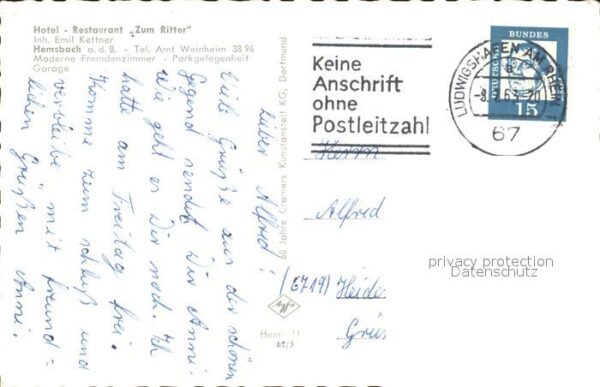 Hotel - Restaurant „Zum Ritter"
Inh. Emil Kettner
Hemsbach a. d. B. - Tel. Amt Weinheim 38 96
Moderne Fremdenzimmer - Parkgelegenheit
Garage
Lieber Alfred!
Viele Grüße aus der schönen
Gegend sendet Dir Anni.
Wie geht es Dir noch. Ich
hatte am Freitag frei.
Komme zum schluß und
verbleibe mit freund=
lichen Grüßen Anni.
60 Jahre Cramers Kunstanstalt KG, Dortmund
Agfa
62/3
Keine
Anschrift
ohne
Postleitzahl
LUDWIGSHAFEN AM RHEIN
67
BUNDES
DEUTSCHE
15
Herrn
Alfred
(6719) Heide
Grü
privacy protection
Datenschutz